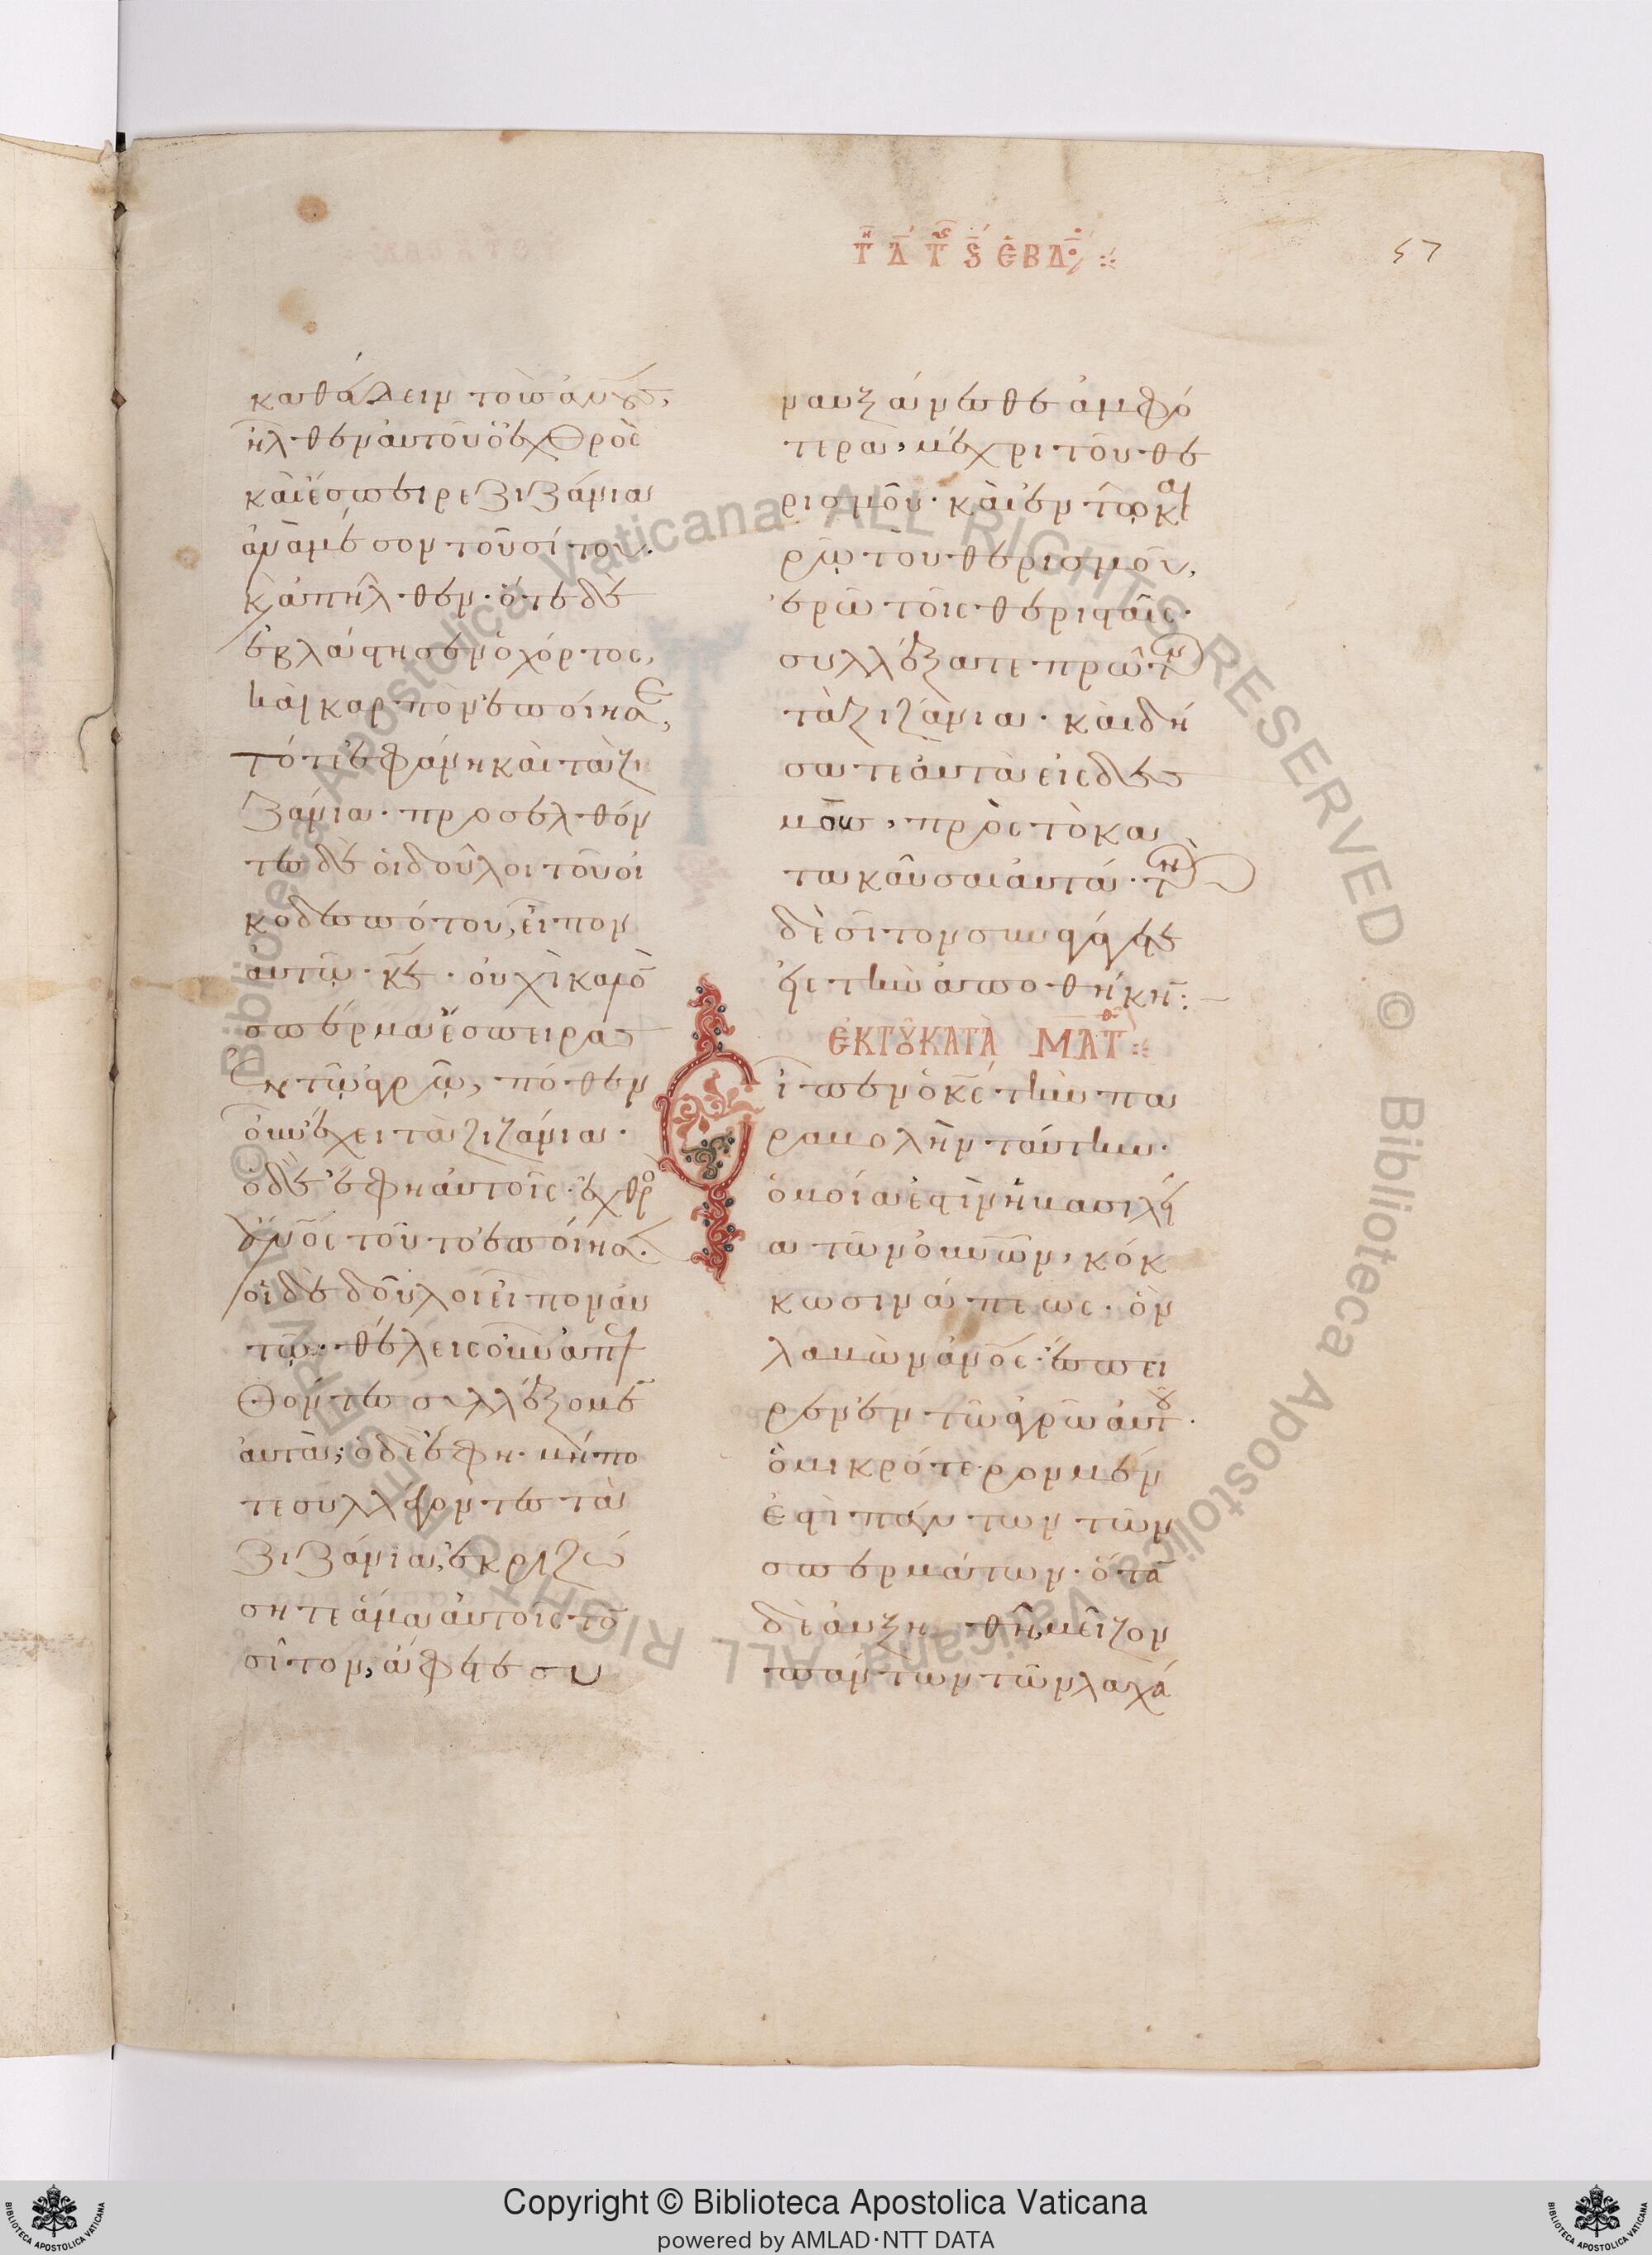 Τῇ Δ τῆς ϛ ἑβδο
57
καθεύδειν τοὺς ἀνους,
ἦλθεν αὐτοῦ ὁ ἐχθρὸς
καὶ ἔσπειρε ζιζάνια
ἀνὰ μέσον τοῦ σίτου·
κ ἀπῆλθεν· ὅτε δὲ
ἐβλάστησεν ὁ χόρτος,
καὶ καρπὸν ἐποίησε,
τότε ἐφάνη καὶ τὰ ζι
ζάνια· προσελθόν
τες δὲ οἱ δοῦλοι τοῦ οἰ
κοδεσπότου, εἶπον
αὐτῷ· κε· οὐχὶ καλὸ
σπέρμα ἔσπειρας
ἐν τῷ ἀγρῷ, πόθεν
οὖν ἔχει τὰ ζιζάνια·
ὁ δὲ ἔφη αὐτοῖς· ἐχθρὸ
ἀνος τοῦτο ἐποίησε·
οἱ δὲ δοῦλοι εἶπον αὐ
τῷ· θέλεις οὖν ἀπελ
θόντες συλλέξομεν
αὐτά; ὁ δὲ ἔφη· μήπο
τε συλλέγοντες τὰ
ζιζάνια, ἐκριζώ
σητε ἅμα αὐτοῖς τὸ
σῖτον, ἄφετε συ
ναυξάνεσθε ἀμφό
τερα, μέχρι τοῦ θε
ρισμοῦ· καὶ ἐν τῷ και
ρῷ τοῦ θερισμοῦ,
ἐρῶ τοῖς θερισταῖς·
συλλέξατε πρῶτον
τὰ ζιζάνια· καὶ δή
σατε αὐτὰ εἰς δεσ
μὰς, πρὸς τὸ κα
τακαῦσαι αὐτά· τὸν
δὲ σῖτον συναγάγετε
εἰς τὴν ἀποθήκην:
ἘΚ ΤΟΥ ΚΑΤᾺ ΜΑΤΘ
Εἶπεν ὁ κς τὴν πα
ραβολὴν ταύτην·
ὁμοία ἐστὶν ἡ βασιλεί
α τῶν οὐνῶν, κόκ
κω σινάπεως· ὃν
λαβὼν ἀνος ἔσπει
ρεν ἐν τῷ ἀγρῷ αὐτοῦ·
ὃ μικρότερον μέν
ἐστὶ πάντων τῶν
σπερμάτων· ὅταν
δὲ αὐξηθῆ, μεῖζον
πάντων τῶν λαχά
Copyright © Biblioteca Apostolica Vaticana
powered by AMLAD·NTT DATA